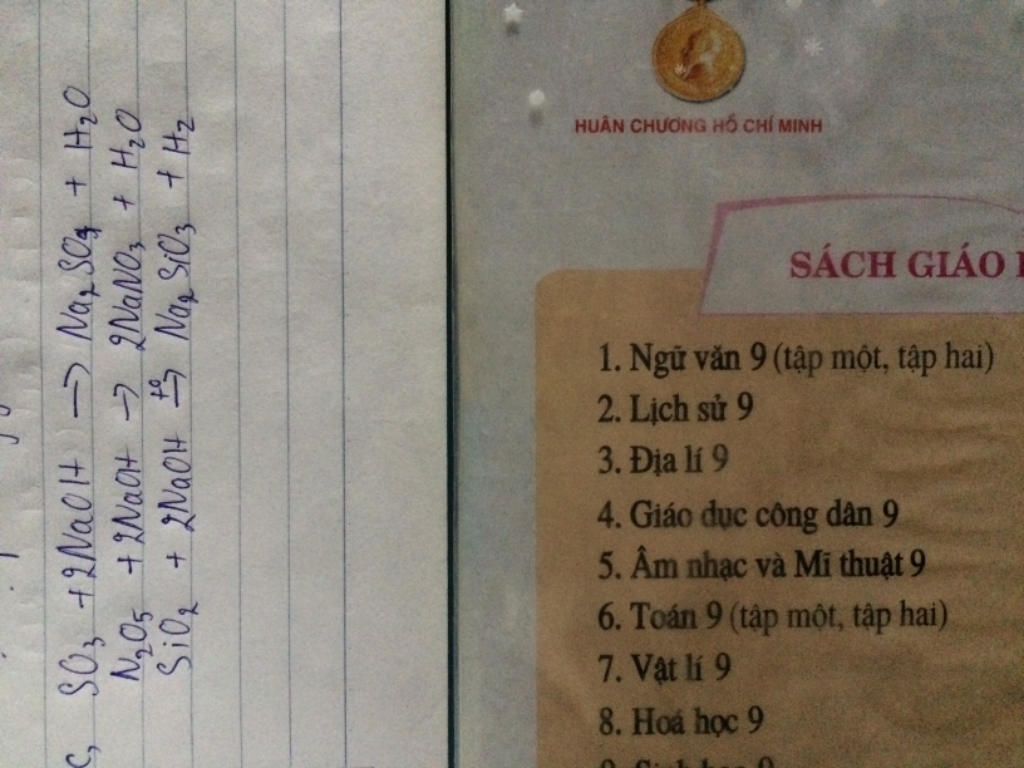 c, SO3 + 2NaOH → Na2SO4 + H2O
N2O5 + 2NaOH → 2NaNO3 + H2O
SiO2 + 2NaOH t° → Na2SiO3 + H2
HUÂN CHƯƠNG HỒ CHÍ MINH
SÁCH GIÁO
1. Ngữ văn 9 (tập một, tập hai)
2. Lịch sử 9
3. Địa lí 9
4. Giáo dục công dân 9
5. Âm nhạc và Mĩ thuật 9
6. Toán 9 (tập một, tập hai)
7. Vật lí 9
8. Hoá học 9